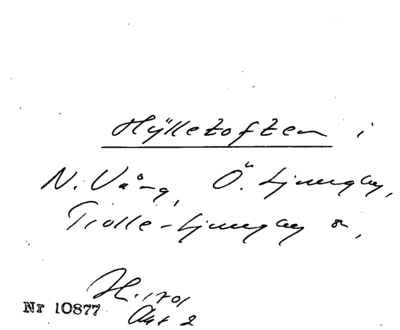 Hylletoften i
N. Vång, Ö. Ljungby,
Trolle-Ljungby s,
Akt 2
Nr 10877